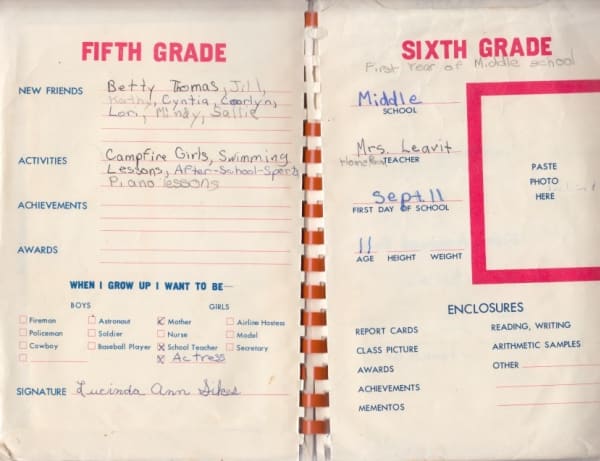 FIFTH GRADE
NEW FRIENDS Betty Thomas, Jill,
Kathy, Cyntia, Carolyn,
Lori, Mindy, Sallie
ACTIVITIES Campfire Girls, Swimming
Lessons, After-School-Sports
Piano lessons
ACHIEVEMENTS
AWARDS
WHEN I GROW UP I WANT TO BE—
BOYS GIRLS
Fireman Astronaut Mother Airline Hostess
Policeman Soldier Nurse Model
Cowboy Baseball Player School Teacher Secretary
Actress
SIGNATURE Lucinda Ann Sikes
SIXTH GRADE
First Year of Middle school
Middle
SCHOOL
Mrs. Leavit
HomeRoom TEACHER
Sept. 11
FIRST DAY OF SCHOOL
11
AGE HEIGHT WEIGHT
PASTE
PHOTO
HERE
ENCLOSURES
REPORT CARDS READING, WRITING
CLASS PICTURE ARITHMETIC SAMPLES
AWARDS OTHER
ACHIEVEMENTS
MEMENTOS